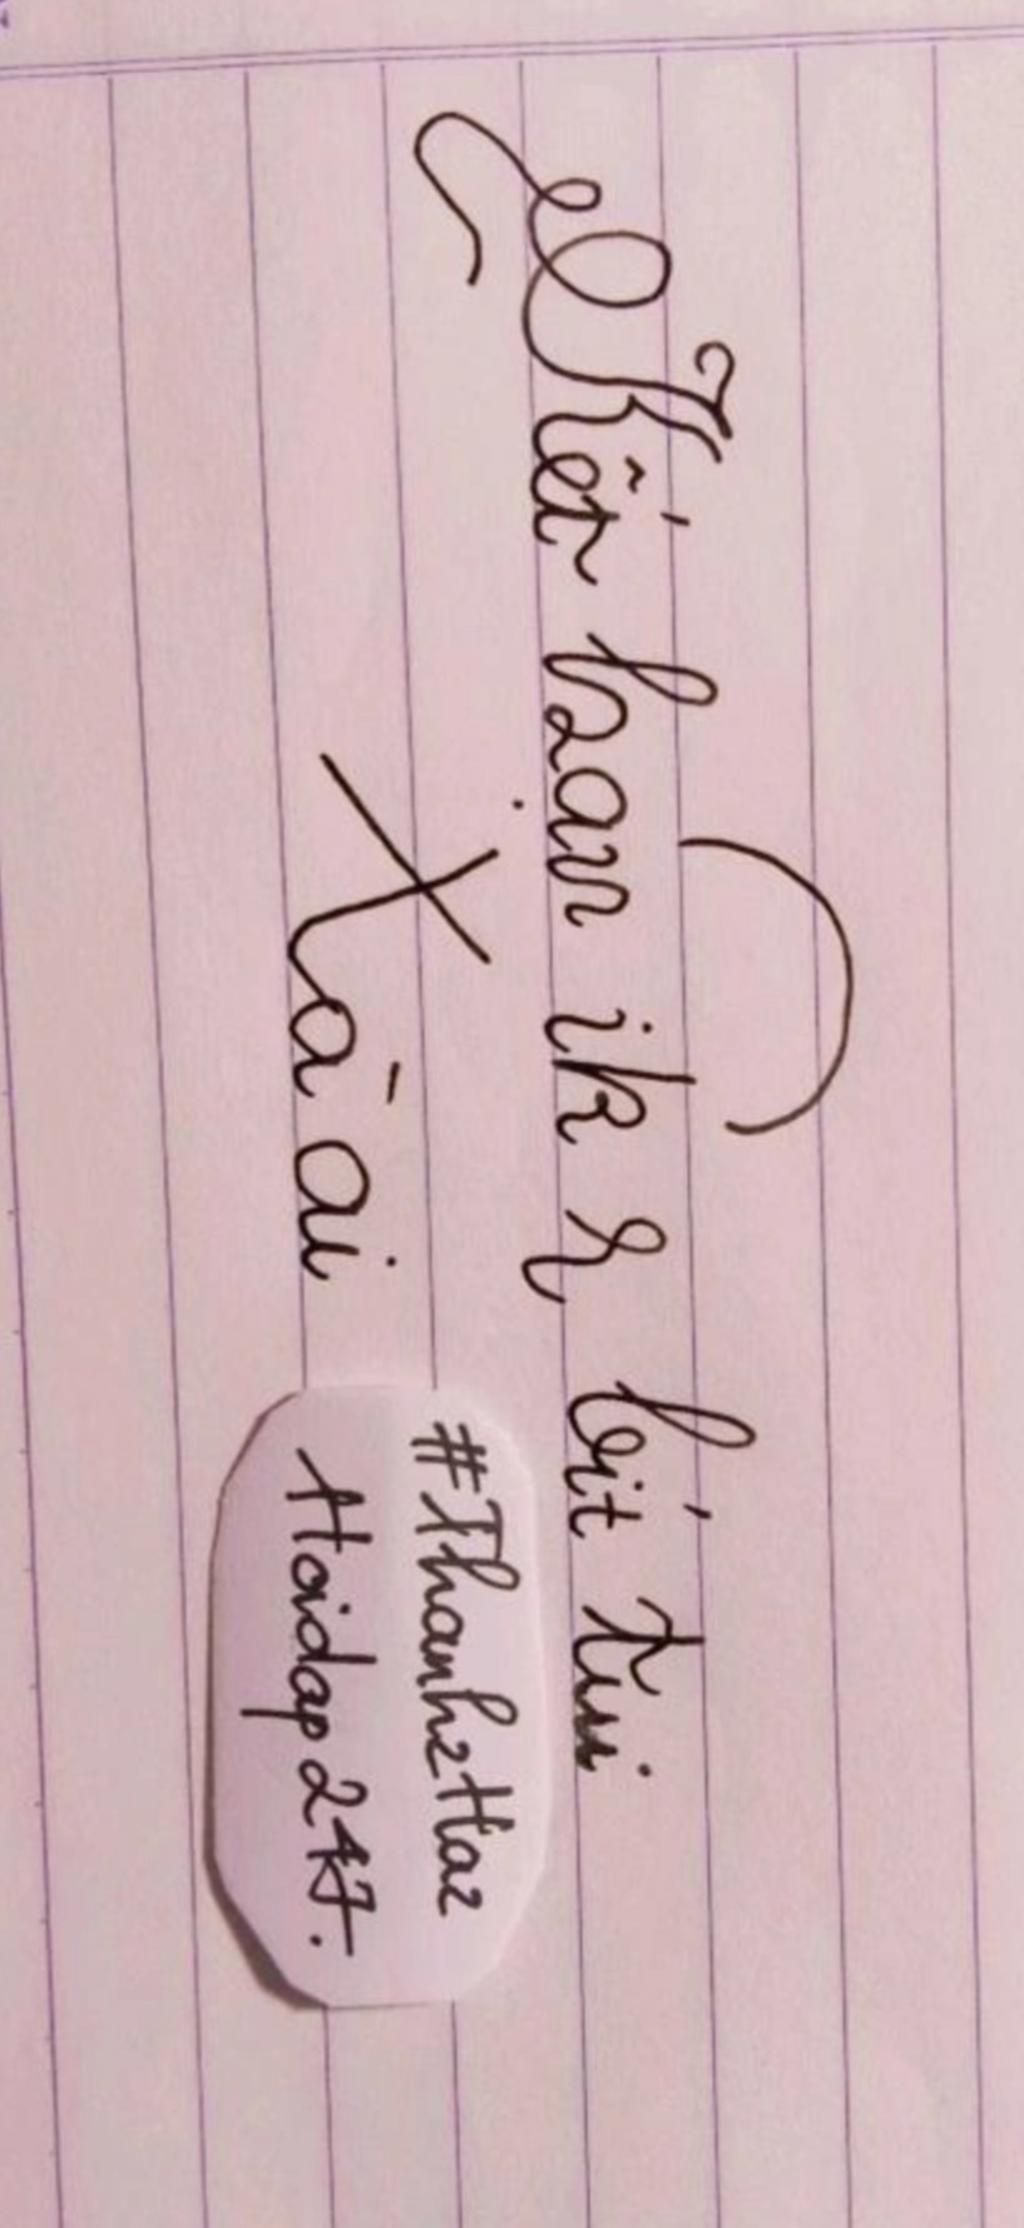 Kết bzạn ik r bít tui
Là ai
#ThanhzHaz
Hoidap247.